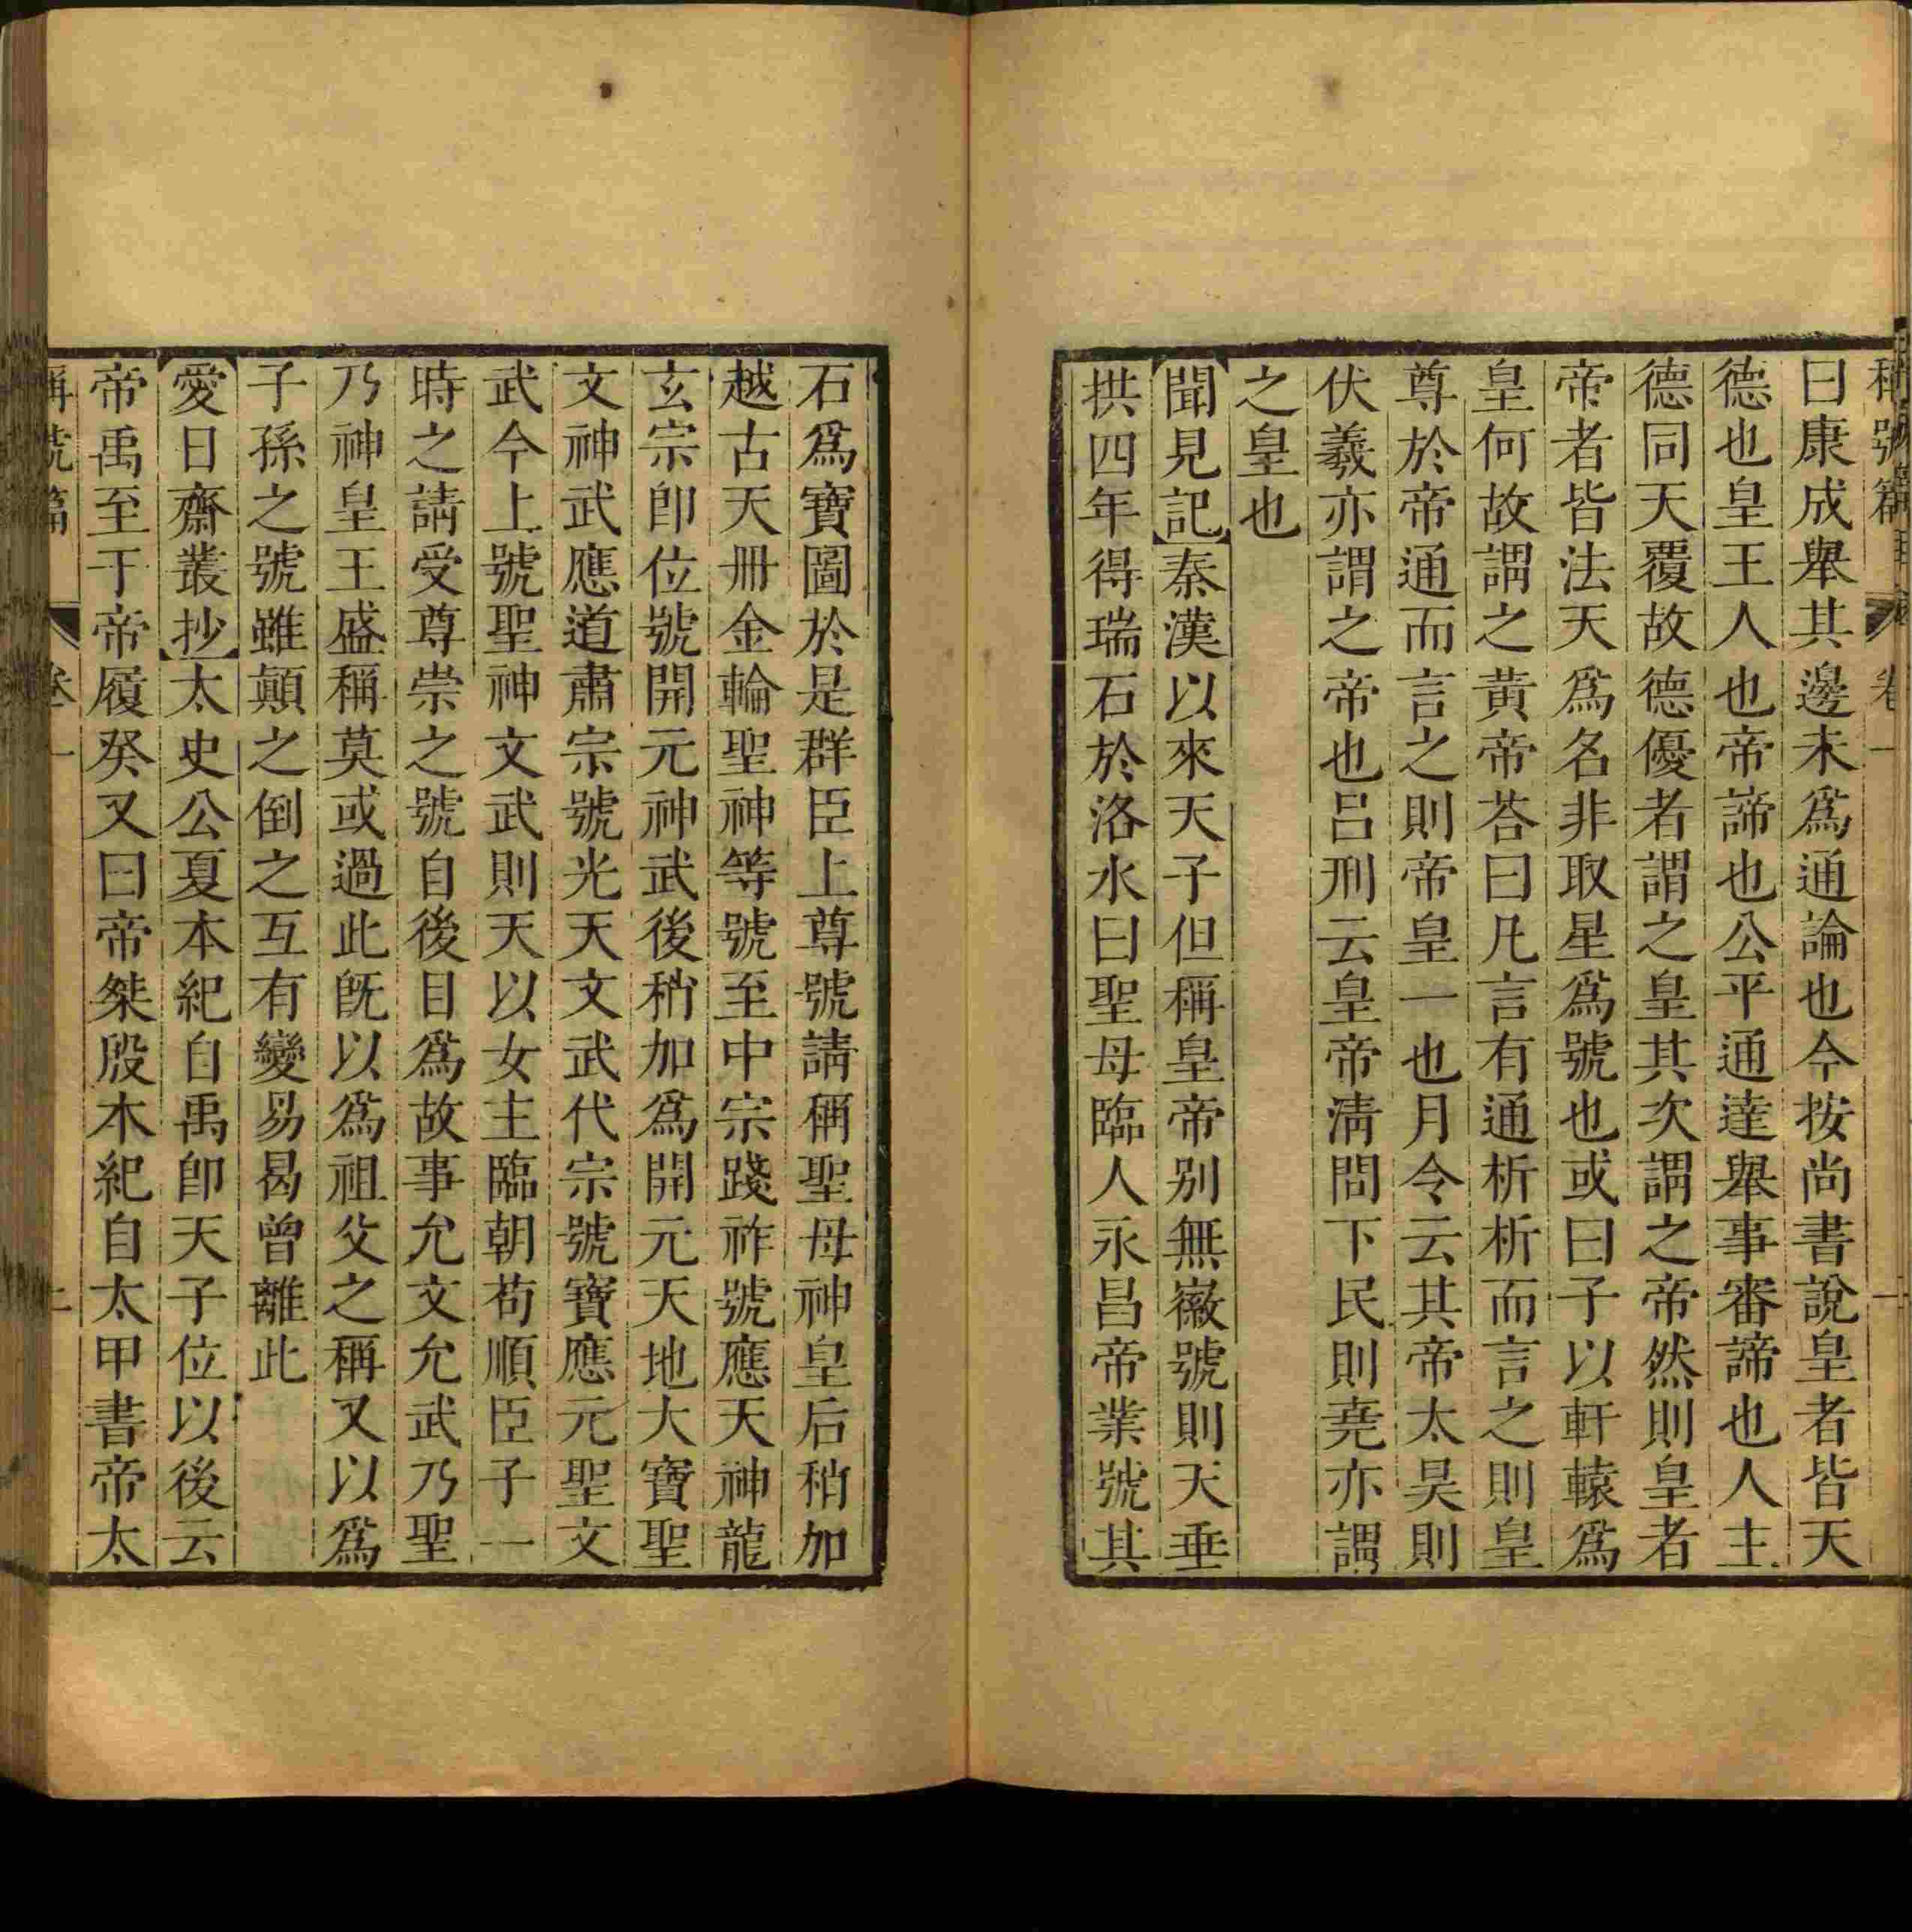 稱號篇 卷一 一
曰康成舉其邊未爲通論也今按尚書說皇者皆天
德也皇王人也帝諦也公平通達舉事審諦也人主
德同天覆故德優者謂之皇其次謂之帝然則皇者
帝者皆法天爲名非取星爲號也或曰子以軒轅爲
皇何故謂之黄帝荅曰凡言有通析析而言之則皇
尊於帝通而言之則帝皇一也月令云其帝太昊則
伏羲亦謂之帝也呂刑云皇帝淸問下民則堯亦謂
之皇也
聞見記秦漢以來天子但稱皇帝别無徽號則天垂
拱四年得瑞石於洛水曰聖母臨人永昌帝業號其
石爲寶圖於是群臣上尊號請稱聖母神皇后稍加
越古天冊金輪聖神等號至中宗踐祚號應天神龍
玄宗卽位號開元神武後稍加爲開元天地大寶聖
文神武應道肅宗號光天文武代宗號寶應元聖文
武今上號聖神文武則天以女主臨朝苟順臣子一
時之請受尊崇之號自後目爲故事允文允武乃聖
乃神皇王盛稱莫或過此旣以爲祖父之稱又以爲
子孫之號雖顚之倒之互有變易曷曾離此
愛日齋叢抄太史公夏本紀自禹卽天子位以後云
帝禹至于帝履癸又曰帝桀殷本紀自太甲書帝太
稱號篇 卷一 二